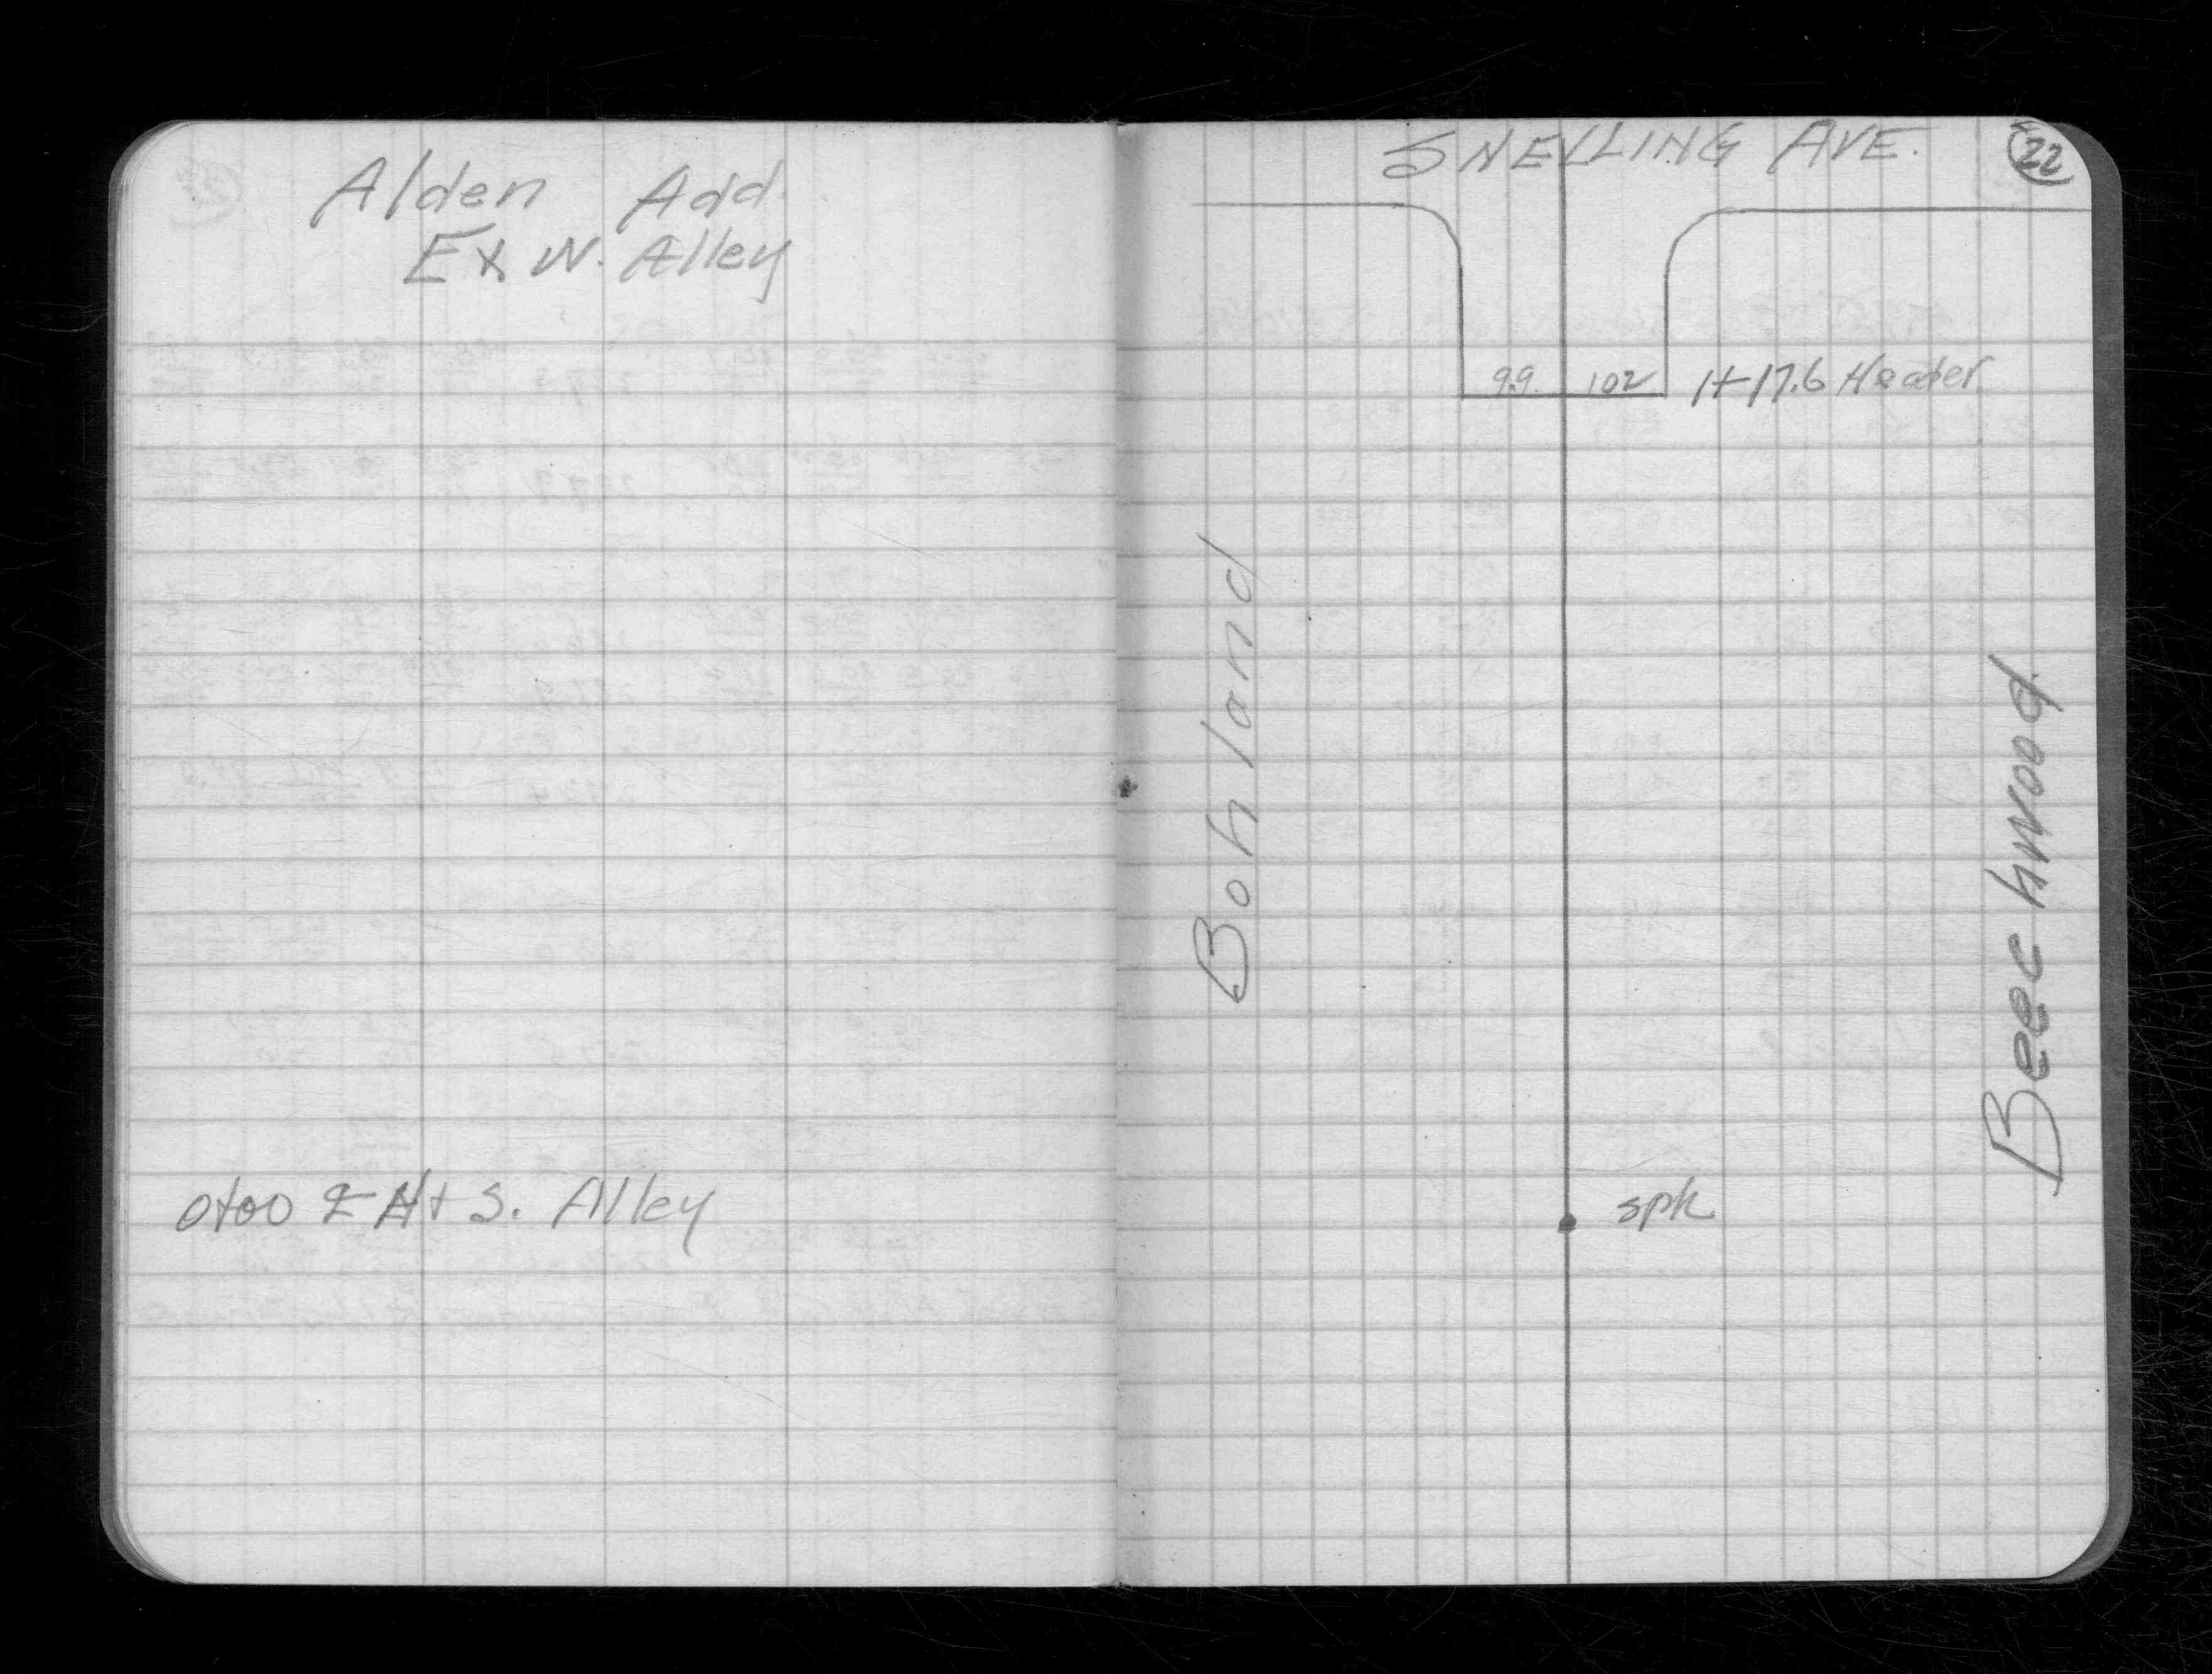 Alden Add.
Ex W. Alley
0+00 ℄ N+S. Alley
SNELLING AVE.
22
9.9. 10.2 1+17.6 Header
Bohland
Beechwood
spk